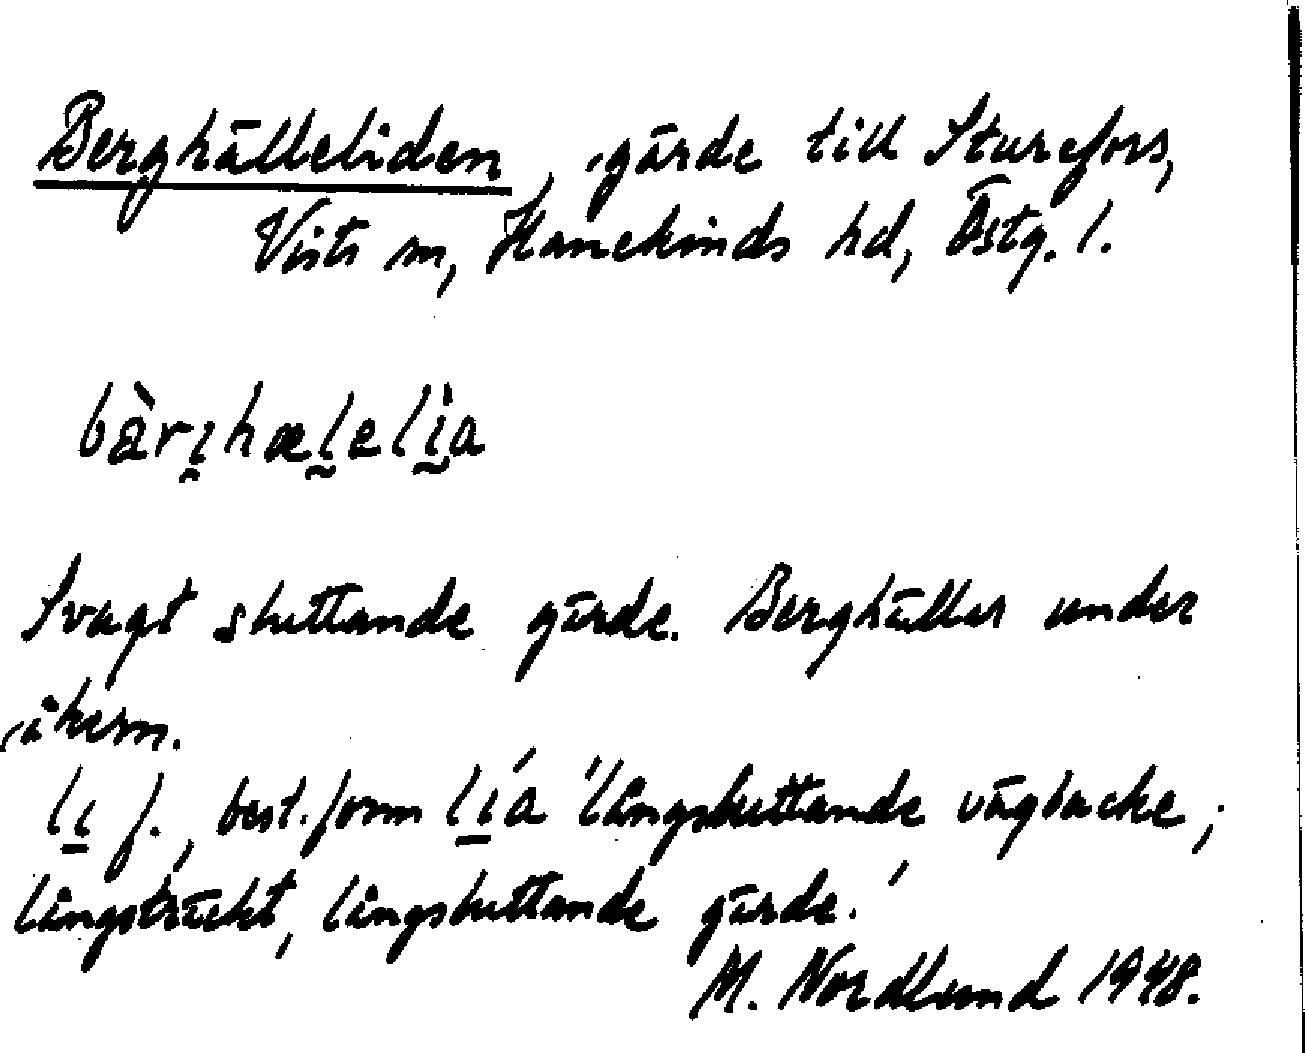 Berghälleliden, gärde till Sturefors,
Vists sn, Hanekinds hd, Östg. l.
bàrı̰hæl̰elı̰̀a
Svagt sluttande gärde. Berghällar under
åkern.
lı̱ f., best. form lı̱́a 'långsluttande vägbacke;
långsträckt, långsluttande gärde.'
M. Nordlund 1948.